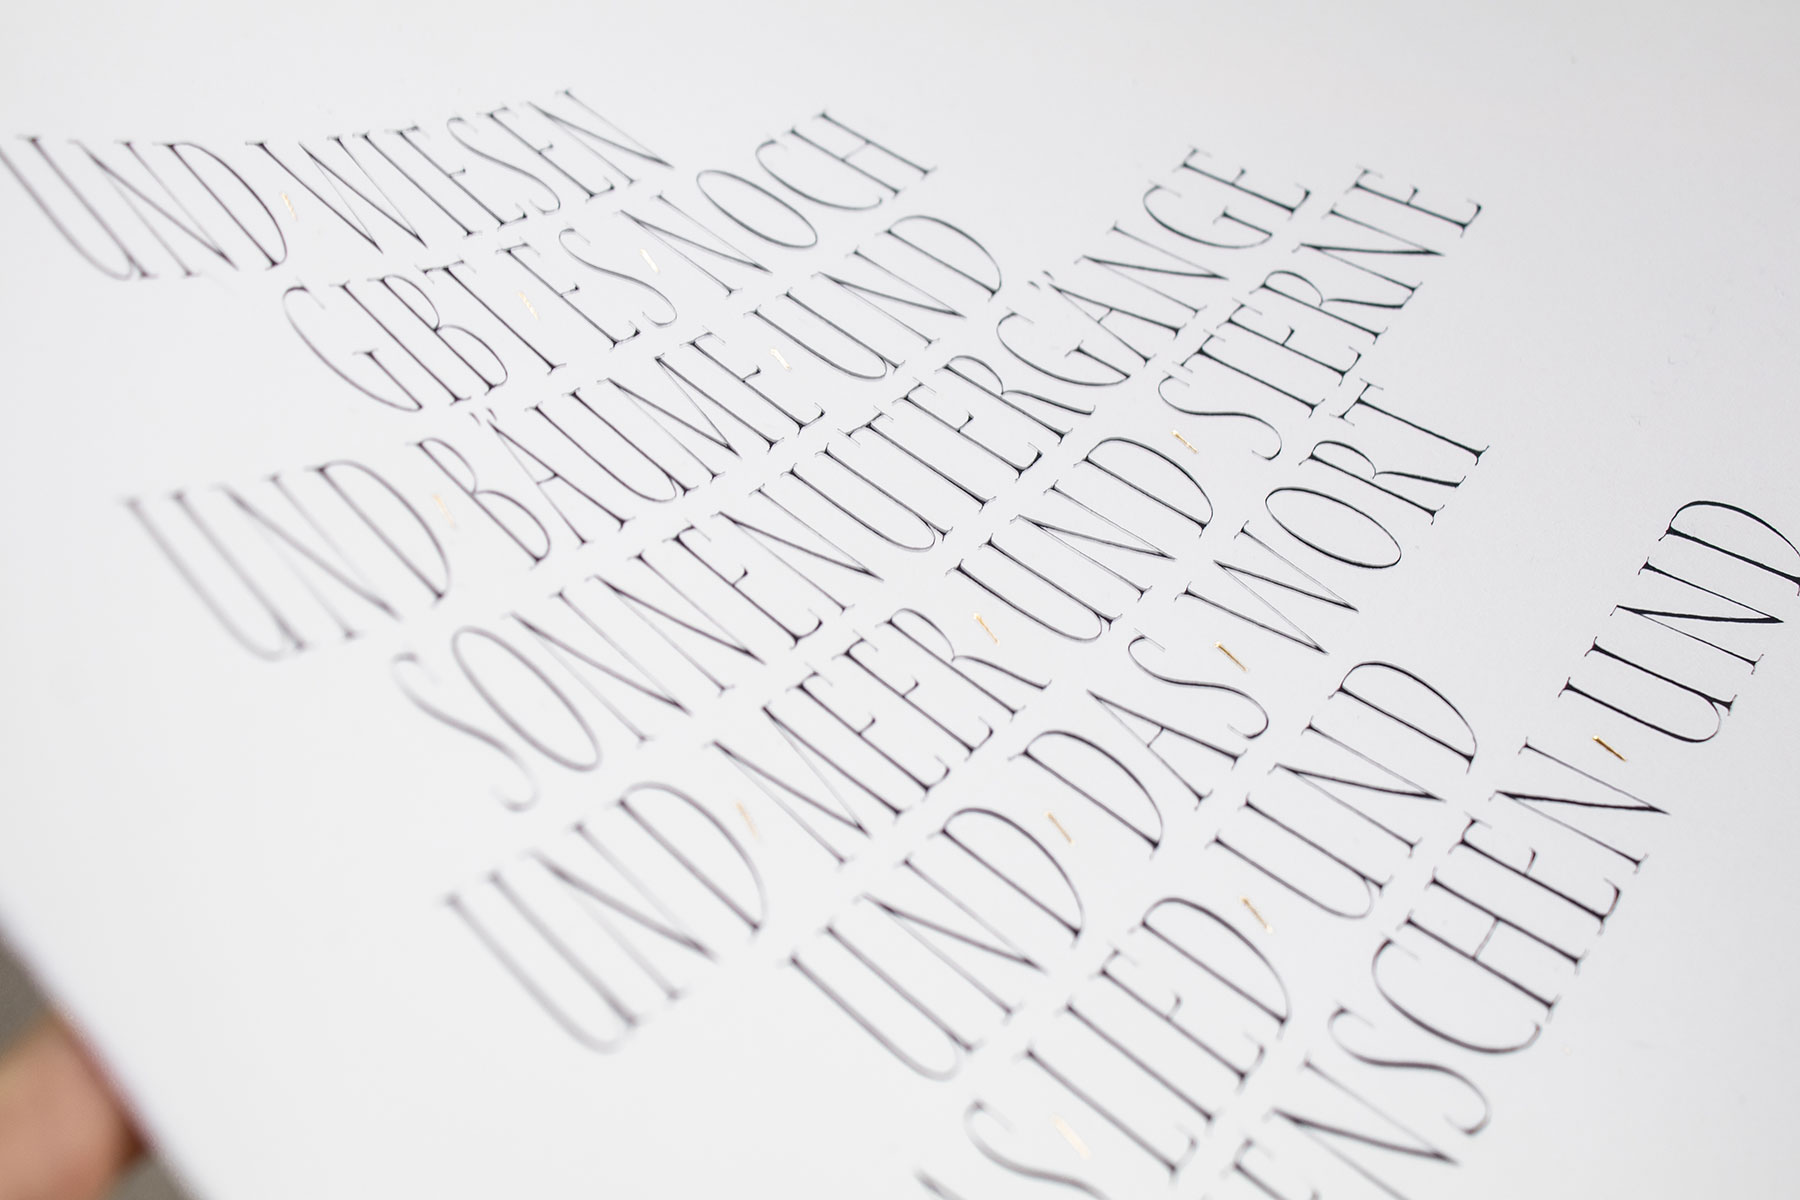 UND WIESEN
GIBT ES NOCH
UND BÄUME UND
SONNENUTERGÄNGE
UND MEER UND STERNE
UND DAS WORT
AS LIED UND
ENSCHEN UND